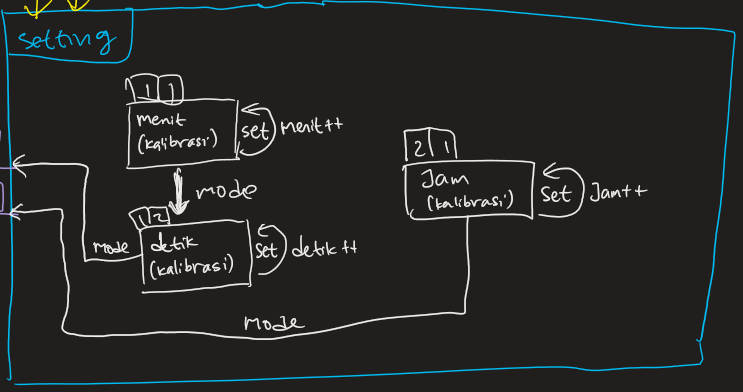 setting
1 1
menit
(kalibrasi)
set
menit++
mode
1 2
detik
(kalibrasi)
set
detik++
mode
2 1
Jam
(kalibrasi)
set
Jam++
mode